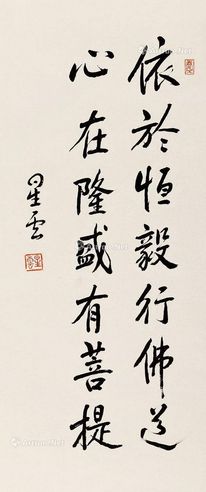 依於恒毅行佛道
心在隆盛有菩提
星雲